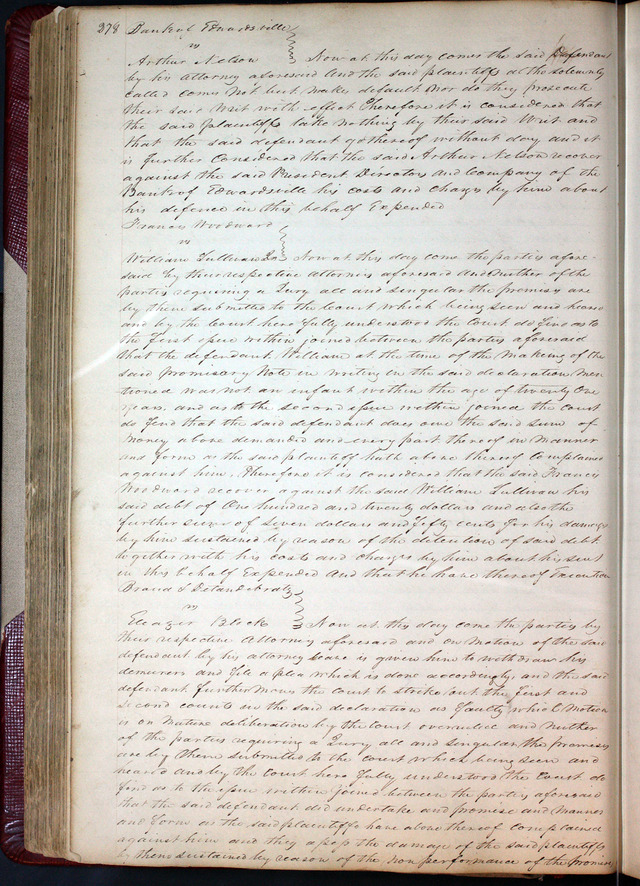 278 Bank of Edwardsville
vs
Arthur Nelson Now at this day comes the said Defendant
by his attorney aforesaid And the said plaintiffs at the solemnly
called comes Not but make default Nor do they prosecute
their said Writ with effect Therefore it is considered that
the said plaintiffs take nothing by their said Writ and
that the said defendant go thereof without day and it
is further Considered that the said Arthur Nelson recover
against the said President Directors and Company of the
Bank of Edwardsville his costs and charges by him about
his defence in this behalf Expended
Francis Woodward
vs
William Sullivan Now at this day come the parties afore-
said by their respective attorneys aforesaid and Neither of the
parties requiring a Jury all and singular the premises are
by them submitted to the Court which being seen and heard
and by the Court here fully understood the Court do find as to
the first issue within joined between the parties aforesaid
that the defendant William at the time of the Making of the
said promissory Note in writing in the said declaration Men
tioned was not an infant within the age of twenty One
years. and as to the second issue within joined the Court
do find that the said defendant does owe the said sum of
Money above demanded and every part thereof in Manner
and form as the said plaintiff hath above thereof Complained
against him. Therefore it is considered that the said Francis
Woodward recover against the said William Sullivan his
said debt of One hundred and twenty dollars and also the
further sum of Seven dollars and fifty cents for his damages
by him sustained by reason of the detention of said debt
together with his costs and charges by him about his suit
in this behalf Expended And that he have thereof Execution
vs
Eleazer Block Now at this day come the parties by
their respective Attorneys aforesaid and on Motion of the said
defendant by his attorney leave is given him to withdraw his
demurers and file a plea which is done accordingly, and the said
defendant further Moves the court to strike out the first and
second counts in the said declaration as faulty which Motion
is on Mature deliberation by the Court overruled and Neither
of the parties requiring a Jury all and singular the premises
are by them submitted to the Court which being seen and
heard and by the Court here fully understood the Court do
find as to the issue within joined between the parties aforesaid
that the said defendant did undertake and promise and Manner
and form as the said plaintiffs have above thereof complained
against him and they assess the damage of the said plaintiffs
by them sustained by reason of the Non performance of the promise